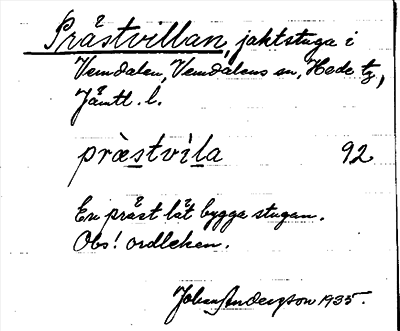 Prästvillan, jaktstuga i
Vemdalen, Vemdalens sn, Hede tg,
Jämtl. l.
præ̀stvìla 92
En präst lät bygga stugan.
Obs! ordleken.
Johan Anderson 1935.